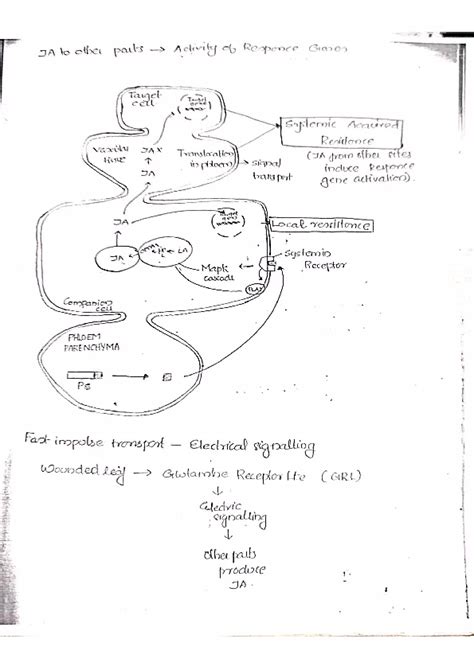 JA to other parts → Activity of Response Genes
Target cell
Target gene
Systemic Acquired
Resistence
Vascular
tissue
JA
Translocation
in phloem
signal
transport
(JA from other sites
induce Response
gene activation).
JA
JA
Target
gene
Local resistence
JA
LA
MapK
cascade
Systemin
Receptor
PLA2
Companion
cell
PHLOEM
PARENCHYMA
PS
Fast impulse transport — Electrical signalling
Wounded leaf → Glutamate Receptor like (GRL)
↓
electric
signalling
↓
other parts
produce
JA.